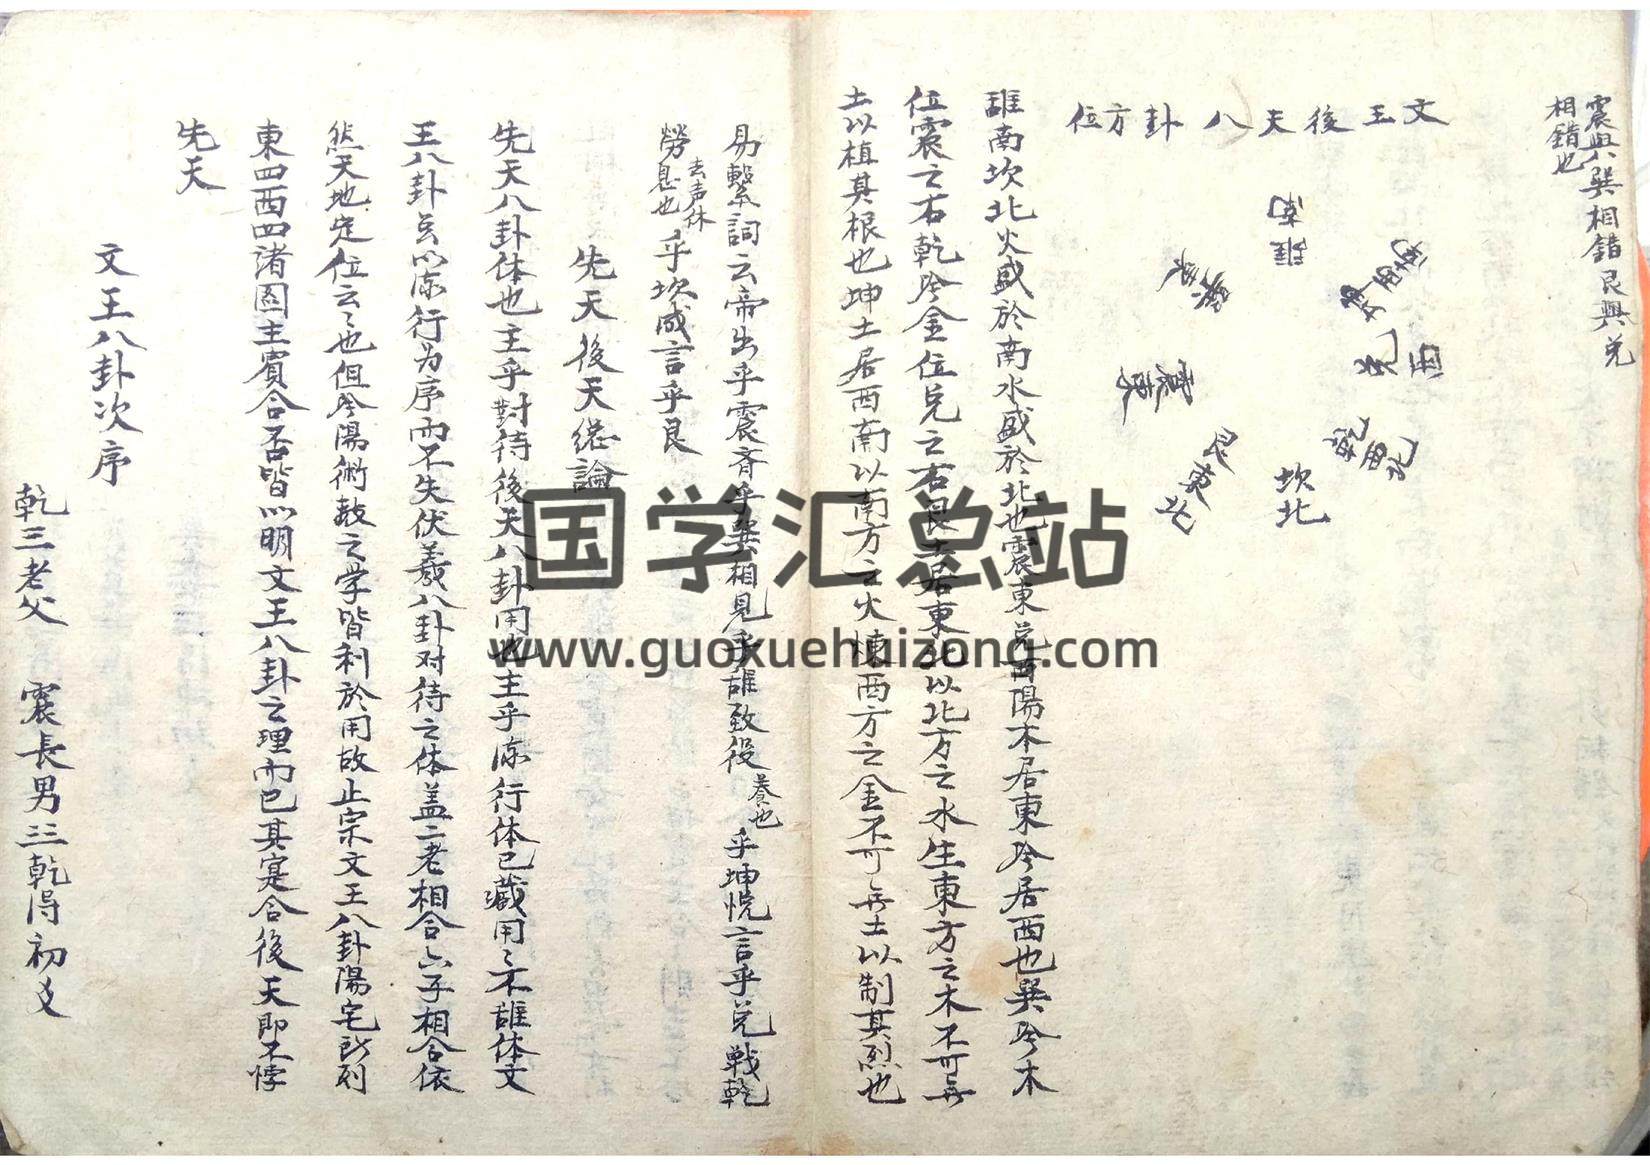 震與巽相錯艮與兌
相錯也
文王後天八卦方位
離南
坤西南
兌西
乾西北
坎北
艮東北
震東
巽東
離南坎北火盛於南水盛於北也震東兌西陽木居東阴居西也巽阴木
位震之右乾阴金位兌之右艮土居東北以北方之水生東方之木不可無
土以植其根也坤土居西南以南方之火煉西方之金不可無土以制其烈也
易繫詞云帝出乎震斉乎巽相見乎離致役養也乎坤悦言乎兌戦乾
勞去声休息也乎坎成言乎艮
先天後天総論
先天八卦体也主乎對待後天八卦用也主乎流行体已藏用〻不離体文
王八卦玄以流行为序而不失伏羲八卦対待之体盖二老相合六子相合依
然天地定位云〻也但阴陽術数之学皆利於用故止宗文王八卦陽宅所列
東四西四诸图主賓合否皆以明文王八卦之理而已其寔合後天即不悖
先天
文王八卦次序
乾三老父 震長男三乾得初爻
国学汇总站
www.guoxuehuizong.com